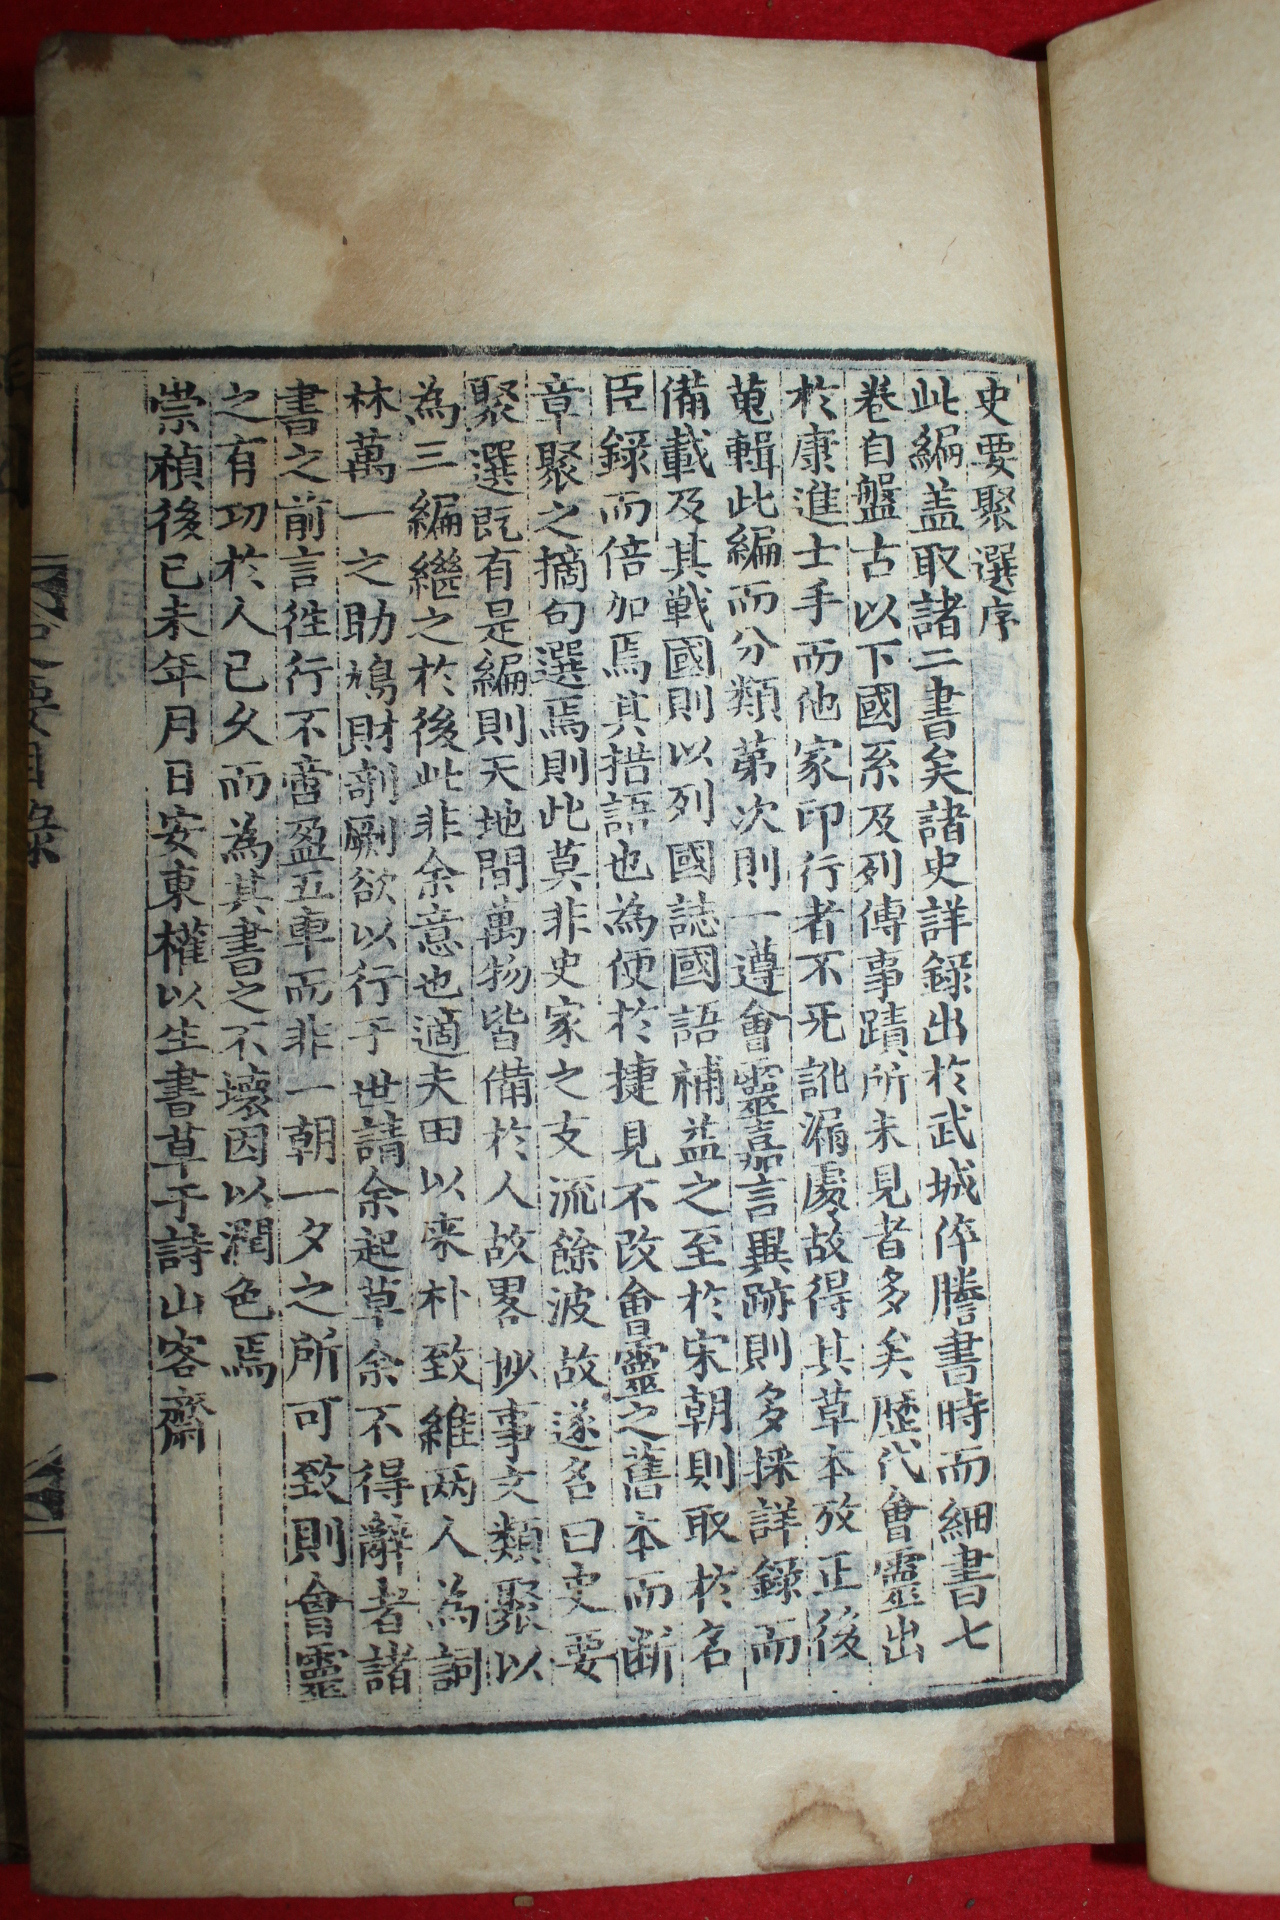 史要聚選序
此編盖取諸二書矣諸史詳錄出於武城倅謄書時而細書七
卷自盤古以下國系及列傳事蹟所未見者多矣歷代會靈出
於康進士手而他家印行者不死訛漏處故得其草本攷正後
蒐輯此編而分類苐次則一遵會靈嘉言異跡則多採詳錄而
備載及其戰國則以列國誌國語補益之至於宋朝則取於名
臣錄而倍加焉其措語也為便於捷見不改會靈之舊本而断
章聚之摘句選焉則此莫非史家之支流餘波故遂名曰史要
聚選旣有是編則天地間萬物皆備於人故畧抄事文類聚以
為三編繼之於後此非余意也適夫田以采朴致維两人為詞
林萬一之助鳩財剞劂欲以行于世請余起草余不得辭者諸
書之前言徃行不啻盈五車而非一朝一夕之所可致則會靈
之有功於人已久而為其書之不壞因以潤色焉
崇禎後已未年月日安東權以生書草于詩山客齋
史要目錄
一